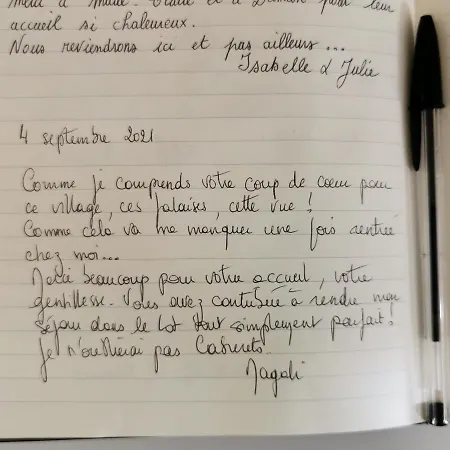 accueil si chaleureux.
Nous reviendrons ici et pas ailleurs...
Isabelle & Julie
4 septembre 2021
Comme je comprends votre coup de cœur pour
ce village, ces falaises, cette vue !
Comme cela va me manquer une fois rentrée
chez moi...
Merci beaucoup pour votre accueil, votre
gentillesse. Vous avez contribué à rendre mon
séjour dans le Lot tout simplement parfait.
Je n'oublierai pas Cabrerets.
Magali